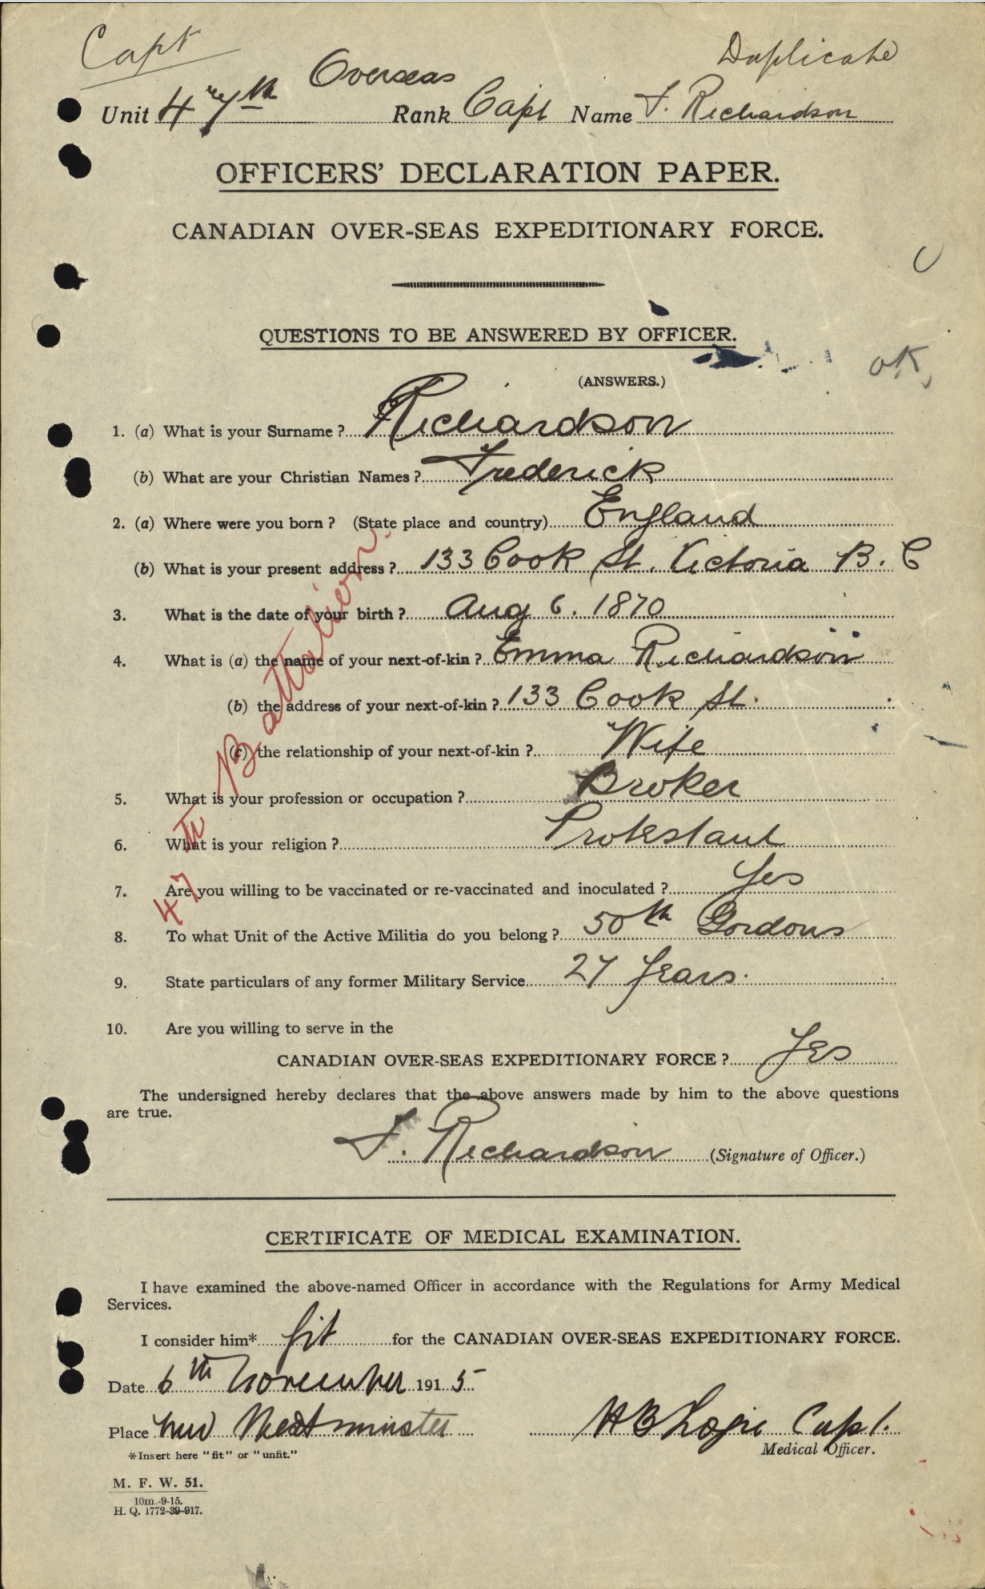 Capt
Overseas Duplicate
Unit 47th Rank Capt Name F. Richardson
OFFICERS' DECLARATION PAPER.
CANADIAN OVER-SEAS EXPEDITIONARY FORCE.
QUESTIONS TO BE ANSWERED BY OFFICER.
OK
(ANSWERS.)
1. (a) What is your Surname ? Richardson
(b) What are your Christian Names ? Frederick
2. (a) Where were you born ? (State place and country) England
(b) What is your present address ? 133 Cook St. Victoria B. C
3. What is the date of your birth ? Aug 6. 1870
4. What is (a) the name of your next-of-kin ? Emma Richardson
(b) the address of your next-of-kin ? 133 Cook St.
(c) the relationship of your next-of-kin ? Wife
5. What is your profession or occupation ? Broker
6. What is your religion ? Protestant
7. Are you willing to be vaccinated or re-vaccinated and inoculated ? Yes
8. To what Unit of the Active Militia do you belong ? 50th Gordons
9. State particulars of any former Military Service 27 Years.
10. Are you willing to serve in the
CANADIAN OVER-SEAS EXPEDITIONARY FORCE ? Yes
47th Battalion.
The undersigned hereby declares that the above answers made by him to the above questions
are true.
F. Richardson (Signature of Officer.)
CERTIFICATE OF MEDICAL EXAMINATION.
I have examined the above-named Officer in accordance with the Regulations for Army Medical
Services.
I consider him* fit for the CANADIAN OVER-SEAS EXPEDITIONARY FORCE.
Date 6th November 1915
Place New Westminster H B Logie Capt.
Medical Officer.
*Insert here "fit" or "unfit."
M. F. W. 51.
10m.-9-15.
H. Q. 1772-39-917.